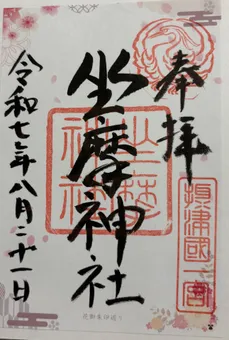 奉拝
摂津國一宮
坐摩神社
令和七年八月二十一日